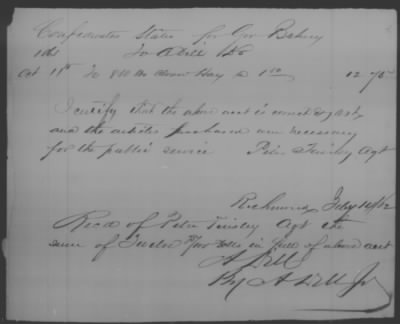 Confederate States for Gov Bakery
To A Bill &Co
Oct 11th To Hay 1 00 12 75
I certify that the above acct is correct & just,
and the articles purchased were necessary
for the public service Peter Tinsley Agt
Richmond, Feby 12/62
Recd of Peter Tinsley Agt the
sum of Twelve Dolls in full of above acct
A Bill
By A Bill Jr